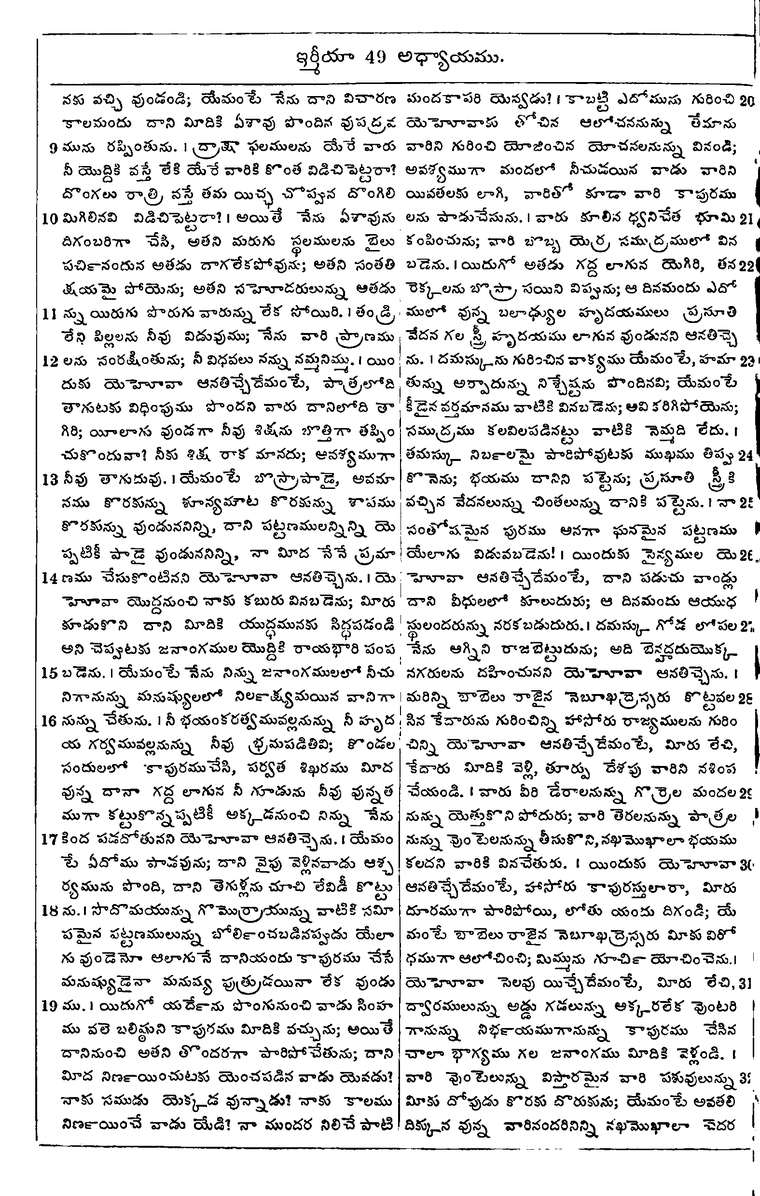 ఇర్మీయా 49 అధ్యాయము.
నకు వచ్చి వుండండి; యేమంటే నేను దాని విచారణ
కాలమందు దాని మీదికి ఏశావు పొందిన వుపద్రవ
9 మును రప్పింతును. । ద్రాక్షా ఫలములను యేరే వారు
నీ యొద్దికి వస్తే లేకి యేరే వారికి కొంత విడిచిపెట్టరా?
దొంగలు రాత్రి వస్తే తమ యిచ్ఛ చొప్పున దొంగిలి
10 మిగిలినవి విడిచిపెట్టరా? । అయితే నేను ఏశావును
దిగంబరిగా చేసి, అతని మరుగు స్థలములను బైలు
పచిన౯ందున అతడు దాగలేకపోవును; అతని సంతతి
క్షయమై పోయెను; అతని సహోదరులున్ను ఆతడు
11 న్ను యిరుగు పొరుగు వారున్ను లేక పోయిరి. । తండ్రి
లేని పిల్లలను నీవు విడువుము; నేను వారి ప్రాణము
12 లను సంరక్షింతును; నీ విధవలు నన్ను నమ్మనిమ్ము. । యిం
దుకు యెహోవా ఆనతిచ్చేదేమంటే, పాత్రలోది
తాగుటకు విధింపుము పొందని వారు దానిలోది తా
గిరి; యీలాగు వుండగా నీవు శిక్షను బొత్తిగా తప్పిం
చుకొందువా? నీకు శిక్ష రాక మానదు; అవశ్యముగా
13 నీవు తాగుదువు. । యేమంటే బొస్రా పాడై, అవమా
నము కొరకున్ను శూన్యమాట కొరకున్ను శాపము
కొరకున్ను వుండుననిన్ని, దాని పట్టణములన్నిన్ని యె
ప్పటికీ పాడై వుండుననిన్ని, నా మీద నేనే ప్రమా
14 ణము చేసుకొంటినని యెహోవా ఆనతిచ్చెను. । యె
హోవా యొద్దనుంచి నాకు కబురు వినబడెను; మీరు
కూడుకొని దాని మీదికి యుద్ధమునకు సిద్ధపడండి
అని చెప్పుటకు జనాంగముల యొద్దికి రాయభారి పంప
15 బడెను. । యేమంటే నేను నిన్ను జనాంగములలో నీచు
నిగానున్ను మనుష్యులలో నిలక్ష్య౯మయిన వానిగా
16 నున్ను చేతును. । నీ భయంకరత్వమువల్లనున్ను నీ హృద
య గర్వమువల్లనున్ను నీవు భ్రమపడితివి; కొండల
సందులలో కాపురముచేసి, పర్వత శిఖరము మీద
వున్న దానా గద్ద లాగున నీ గూడును నీవు వున్నత
ముగా కట్టుకొన్నప్పటికీ అక్కడనుంచి నిన్ను నేను
17 కింద పడదోతునని యెహోవా ఆనతిచ్చెను. । యేమం
టే ఏదోము పాడవును; దాని వైపు వెళ్లినవాడు ఆశ్చ
ర్యమును పొంది, దాని తెగుళ్లను చూచి లేవిడీ కొట్టు
18 ను. । సొదొమయున్ను గొమొర్రాయున్ను వాటికి సమీ
పమైన పట్టణములున్ను బోలి౯ంచబడినప్పుడు యేలా
గు వుండెనో ఆలాగునే దానియందు కాపురము చేసే
మనుష్యుడైనా మనుష్య పుత్రుడయినా లేక వుండు
19 ను. । యిదుగో యదే౯ను పొంగునుంచి వాడు సింహ
ము వలె బలిష్ఠుని కాపురము మీదికి వచ్చును; అయితే
దానినుంచి అతని తొందరగా పారిపోచేతును; దాని
మీద నిణ౯యించుటకు యెంచపడిన వాడు యెవడు?
నాకు సముడు యెక్కడ వున్నాడు? నాకు కాలము
నిణ౯యించే వాడు యేడి? నా ముందర నిలిచే పాటి
మందకాపరి యెన్వడు? । కాబట్టి ఎదోమును గురించి 20
యెహోవాకు తోచిన ఆలోచననున్ను తేమాను
వారిని గురించి యోజించిన యోచనలనున్ను వినండి;
అవశ్యముగా మందలో నీచుడయిన వాడు వారిని
యివతలకు లాగి, వారితో కూడా వారి కాపురము
లను పాడుచేసును. । వారు కూలిన ధ్వనిచేత భూమి 21
కంపించును; వారి బొబ్బ యెర్ర సముద్రములో విన
బడెను. । యిదుగో అతడు గద్ద లాగున యెగిరి, తన 22
రెక్కలను బొస్రా సయిని విప్పును; ఆ దినమందు ఎదో
ములో వున్న బలాఢ్యుల హృదయములు ప్రసూతి
వేదన గల స్త్రీ హృదయము లాగున వుండునని ఆనతిచ్చె
ను. । దమస్కును గురించిన వాక్యము యేమంటే, హమా 23
తున్ను అర్పాదున్ను నిశ్చేష్టను పొందినవి; యేమంటే
కీడైన వర్తమానము వాటికి వినబడెను; అవి కరిగిపోయెను;
సముద్రము కలవిలపడినట్టు వాటికి నెమ్మది లేదు. ।
దమస్కు నిబ౯లమై పారిపోవుటకు ముఖము తిప్పు 24
కొనెను; భయము దానిని పట్టెను; ప్రసూతి స్త్రీకి
వచ్చిన వేదనలున్ను చింతలున్ను దానికి పట్టెను. । నా 25
సంతోషమైన పురము అనగా ఘనమైన పట్టణము
యేలాగు విడువబడెను! । యిందుకు సైన్యముల యె 26
హోవా ఆనతిచ్చేదేమంటే, దాని పడుచు వాండ్లు
దాని వీధులలో కూలుదురు; ఆ దినమందు ఆయుధ
స్థులందరున్ను నరకబడుదురు. । దమస్కు గోడ లోపల 27
నేను అగ్నిని రాజబెట్టుదును; అది బెన్హదదుయొక్క
నగరులను దహించునని యెహోవా ఆనతిచ్చెను. ।
మరిన్ని బాబెలు రాజైన నెబూఖద్రెస్సరు కొట్టవల 28
సిన కేదారును గురించిన్ని హాసోరు రాజ్యములను గురిం
చిన్ని యెహోవా ఆనతిచ్చేదేమంటే, మీరు లేచి,
కేదారు మీదికి వెళ్లి, తూర్పు దేశపు వారిని నశింప
చేయండి. । వారు వీరి డేరాలనున్ను గొర్రెల మందల 29
నున్ను యెత్తుకొని పోదురు; వారి తెరలనున్ను పాత్రల
నున్ను వొంటెలనున్ను తీసుకొని, నఖముఖాలా భయము
కలదని వారికి వినచేతురు. । యిందుకు యెహోవా 30
ఆనతిచ్చేదేమంటే, హాసోరు కాపురస్తులారా, మీరు
దూరముగా పారిపోయి, లోతు యందు దిగండి; యే
మంటే బాబెలు రాజైన నెబూఖద్రెస్సరు మీకు విరో
ధముగా ఆలోచించి; మిమ్మును గూచి౯ యోచించెను. ।
యెహోవా సెలవు యిచ్చేదేమంటే, మీరు లేచి, 31
ద్వారములున్ను అడ్డు గడలున్ను అక్కరలేక వొంటరి
గానున్ను నిభ౯యముగానున్ను కాపురము చేసిన
చాలా భాగ్యము గల జనాంగము మీదికి వెళ్లండి. ।
వారి వొంటెలున్ను విస్తారమైన వారి పశువులున్ను 32
మీకు దోపుడు కొరకు దొరుకును; యేమంటే అవతలి
దిక్కున వున్న వారినందరినిన్ని నఖముఖాలా చెదర